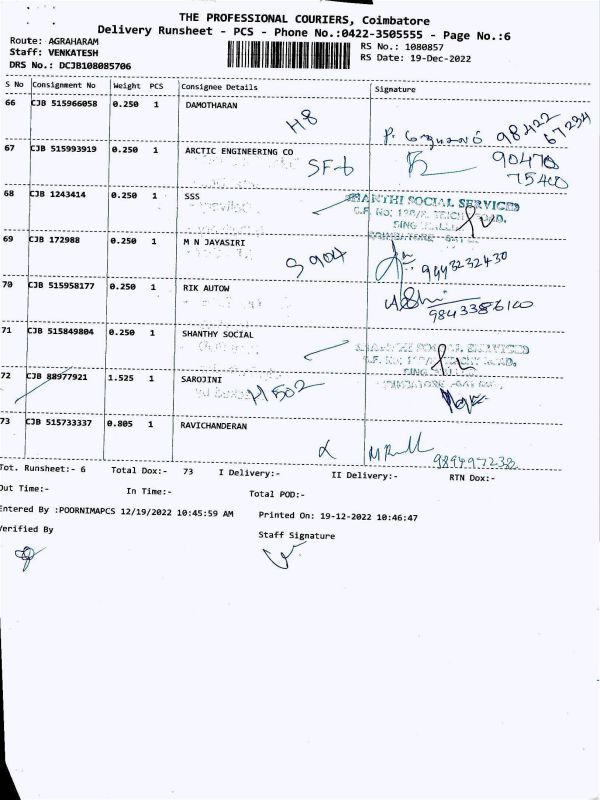 THE PROFESSIONAL COURIERS, Coimbatore
Delivery Runsheet - PCS - Phone No.:0422-3505555 - Page No.:6
Route: AGRAHARAM
Staff: VENKATESH
DRS No.: DCJB108085706
RS No.: 1080857
RS Date: 19-Dec-2022
S No Consignment No Weight PCS Consignee Details Signature
66 CJB 515966058 0.250 1 DAMOTHARAN
H8
98422
67234
67 CJB 515993919 0.250 1 ARCTIC ENGINEERING CO
SF-6
90470
75400
68 CJB 1243414 0.250 1 SSS
SHANTHI SOCIAL SERVICES
69 CJB 172988 0.250 1 M N JAYASIRI
S 904
9443232430
70 CJB 515958177 0.250 1 RIK AUTOW
9843386100
71 CJB 515849804 0.250 1 SHANTHY SOCIAL
SHANTHI SOCIAL SERVICES
72 CJB 88977921 1.525 1 SAROJINI
H 502
73 CJB 515733337 0.805 1 RAVICHANDERAN
989497238
Tot. Runsheet:- 6 Total Dox:- 73 I Delivery:- II Delivery:- RTN Dox:-
Out Time:- In Time:- Total POD:-
Entered By :POORNIMAPCS 12/19/2022 10:45:59 AM Printed On: 19-12-2022 10:46:47
Verified By
Staff Signature